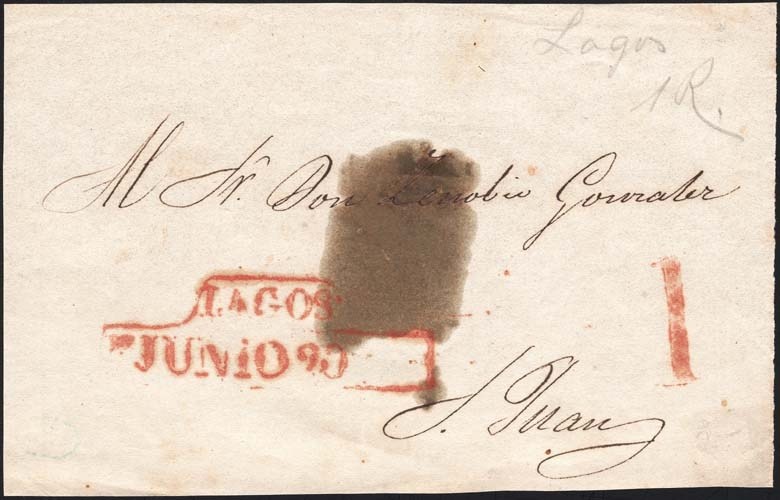 Lagos
1R.
Al Sr. Don Zenobio Gonzalez
LAGOS
JUNIO 20
1
S. Juan